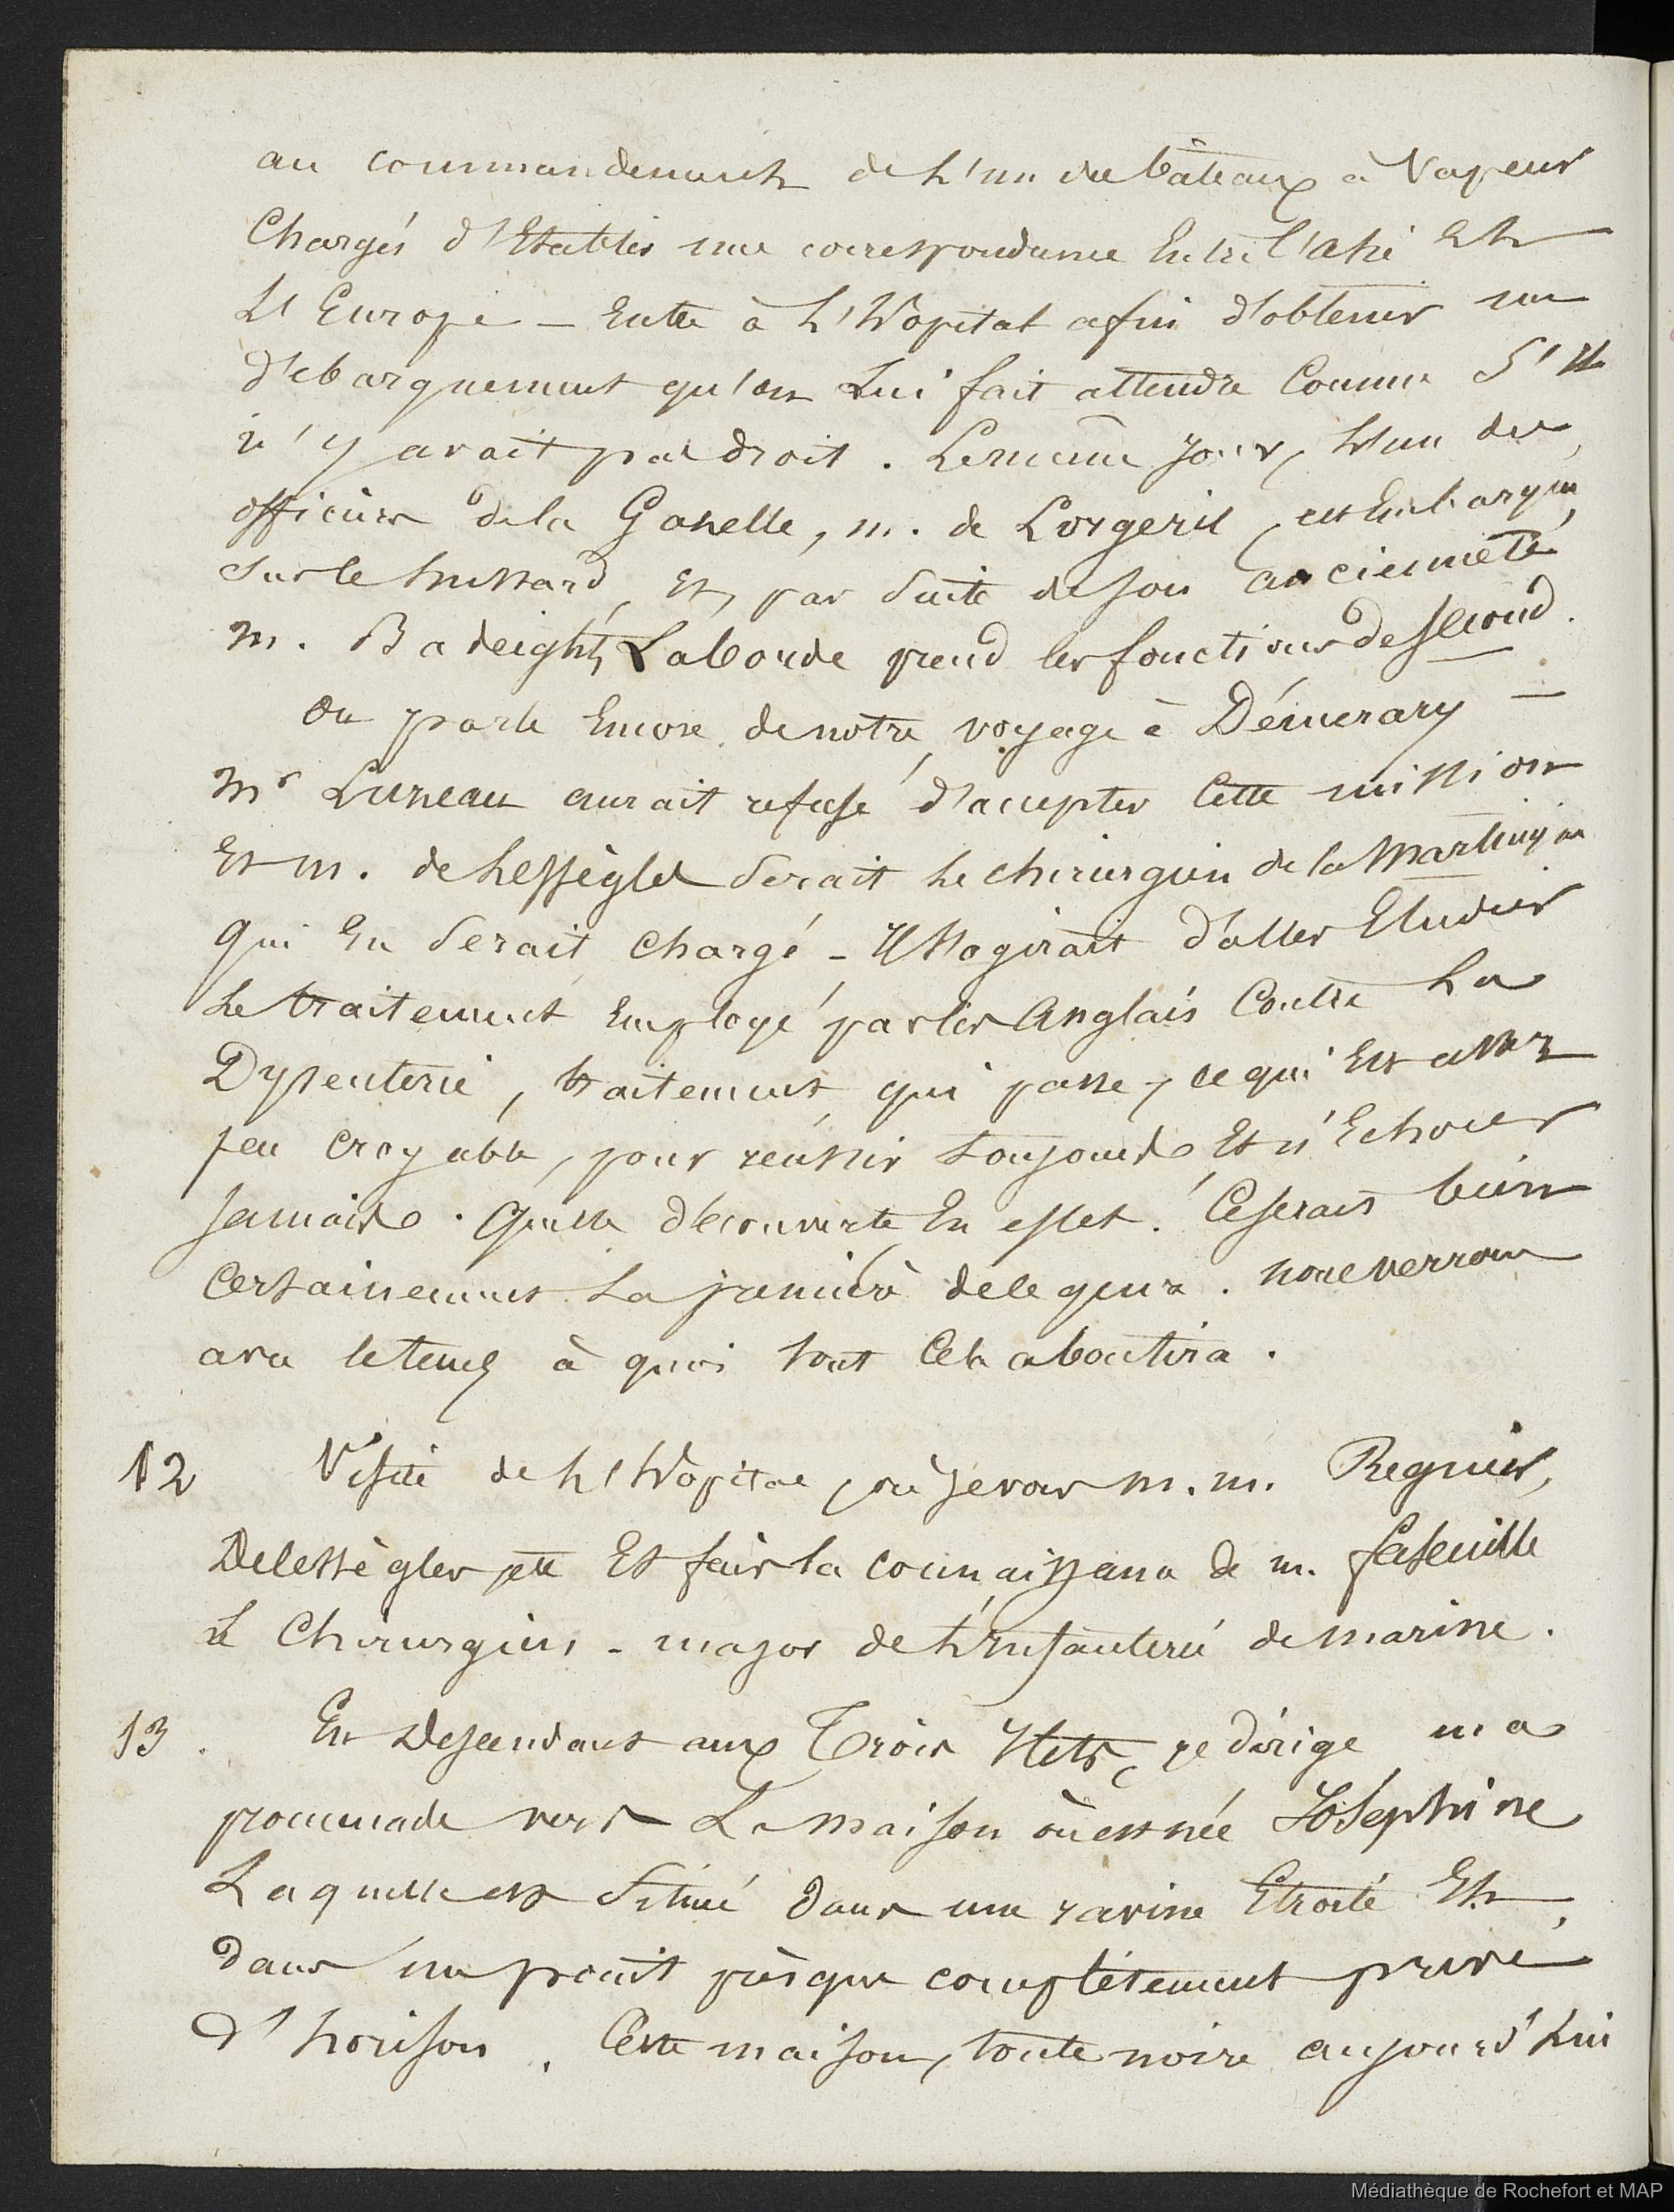 au commandement de L'un des bâteaux à Vapeur
Chargés d'Etablir une correspondance Entre l'asie Et
L'Europe — Entre à L'Hopital afin d'obtenir un
d'ebarquement qu'on Lui fait attendre Comme S'Il
n'y avait pas droit. Le même jour, L'un des
officiers de la Gazelle, m. de Lorgeril, est Embarqué
sur le hussard, Et, par Suite de son ancienneté,
m. Badeigts Laborde prend les fonctions de second.
On parle Encore de notre voyage à Démerary —
Mr Luneau aurait refusé d'accepter Cette mission
Et m. de Lességles Serait Le chirurgien de la Martinique
qui En Serait chargé — Il s'agirait d'aller Etudier
Le traitement Employé par les Anglais Contre La
Dysenterie, traitement qui passe, ce qui Est assez
peu croyable, pour reussir toujours, Et n'Echouer
Jamais. Quelle d'écouverte En effet! Ce serait bien
Certainement La première de ce genre. nous verrons
avec le temps à quoi tout Cela aboutira.
12 Visite de L'Hopital, où je vois m.m. Regnier,
Delességles, etc Et fais la connaissance de m. Lafeuille
Le Chirurgien-major de L'Infanterie de marine.
13. En Descendant aux Trois Ilets, je dirige ma
promenade vers La maison où est née Joséphine
Laquelle est Située dans une ravine Etroite Et,
dans un point presque complétement privé
d'horison. Cette maison, toute noire aujourd'hui
Médiathèque de Rochefort et MAP